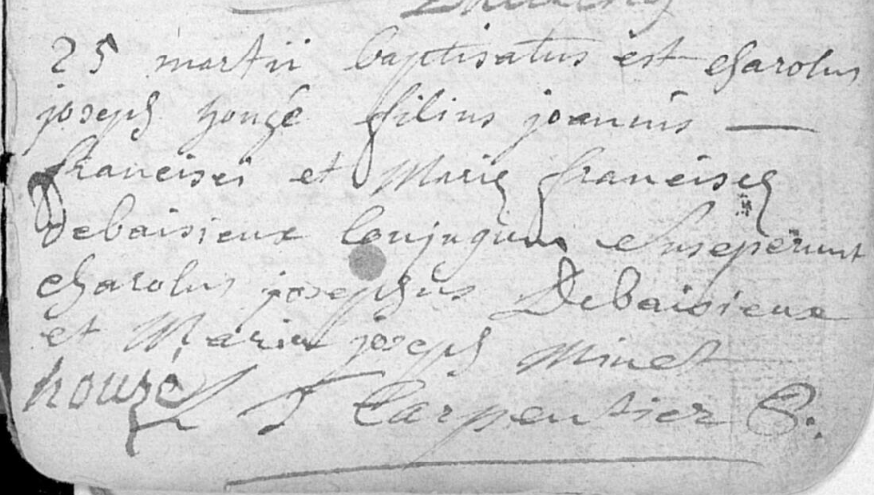 25 martii baptisatus est Charolus
joseph houzé filius joannis —
francisci et Mariæ franciscæ
Debaisieux Conjugum Susceperunt
Charolus josephus Debaisieux
et Maria joseph Minet
houzé
J Carpentier